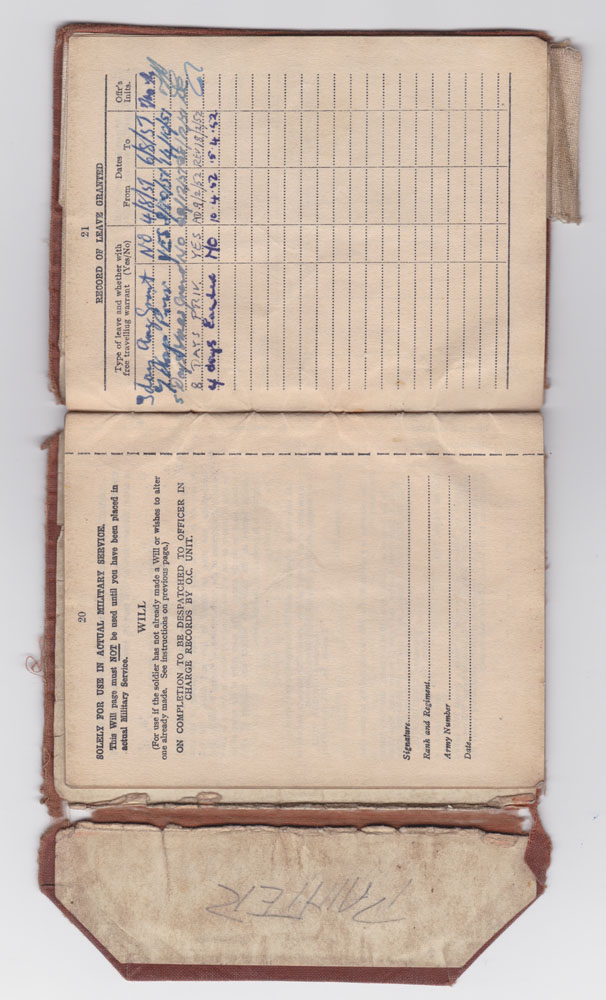 20
SOLELY FOR USE IN ACTUAL MILITARY SERVICE.
This Will page must NOT be used until you have been placed in
actual Military Service.
WILL
(For use if the soldier has not already made a Will or wishes to alter
one already made. See instructions on previous page.)
ON COMPLETION TO BE DESPATCHED TO OFFICER IN
CHARGE RECORDS BY O.C. UNIT.
Signature
Rank and Regiment
Army Number
Date
21
RECORD OF LEAVE GRANTED
Type of leave and whether with
free travelling warrant (Yes/No)
Dates
From To
Offr's
Inits.
Grant NO 4/8/51 6/8/51
YES 14/10/51
NO
8 DAYS PRIV. YES 9/2/52 18/2/52
4 days NO 10.4.52 15.4.52
PAINTER